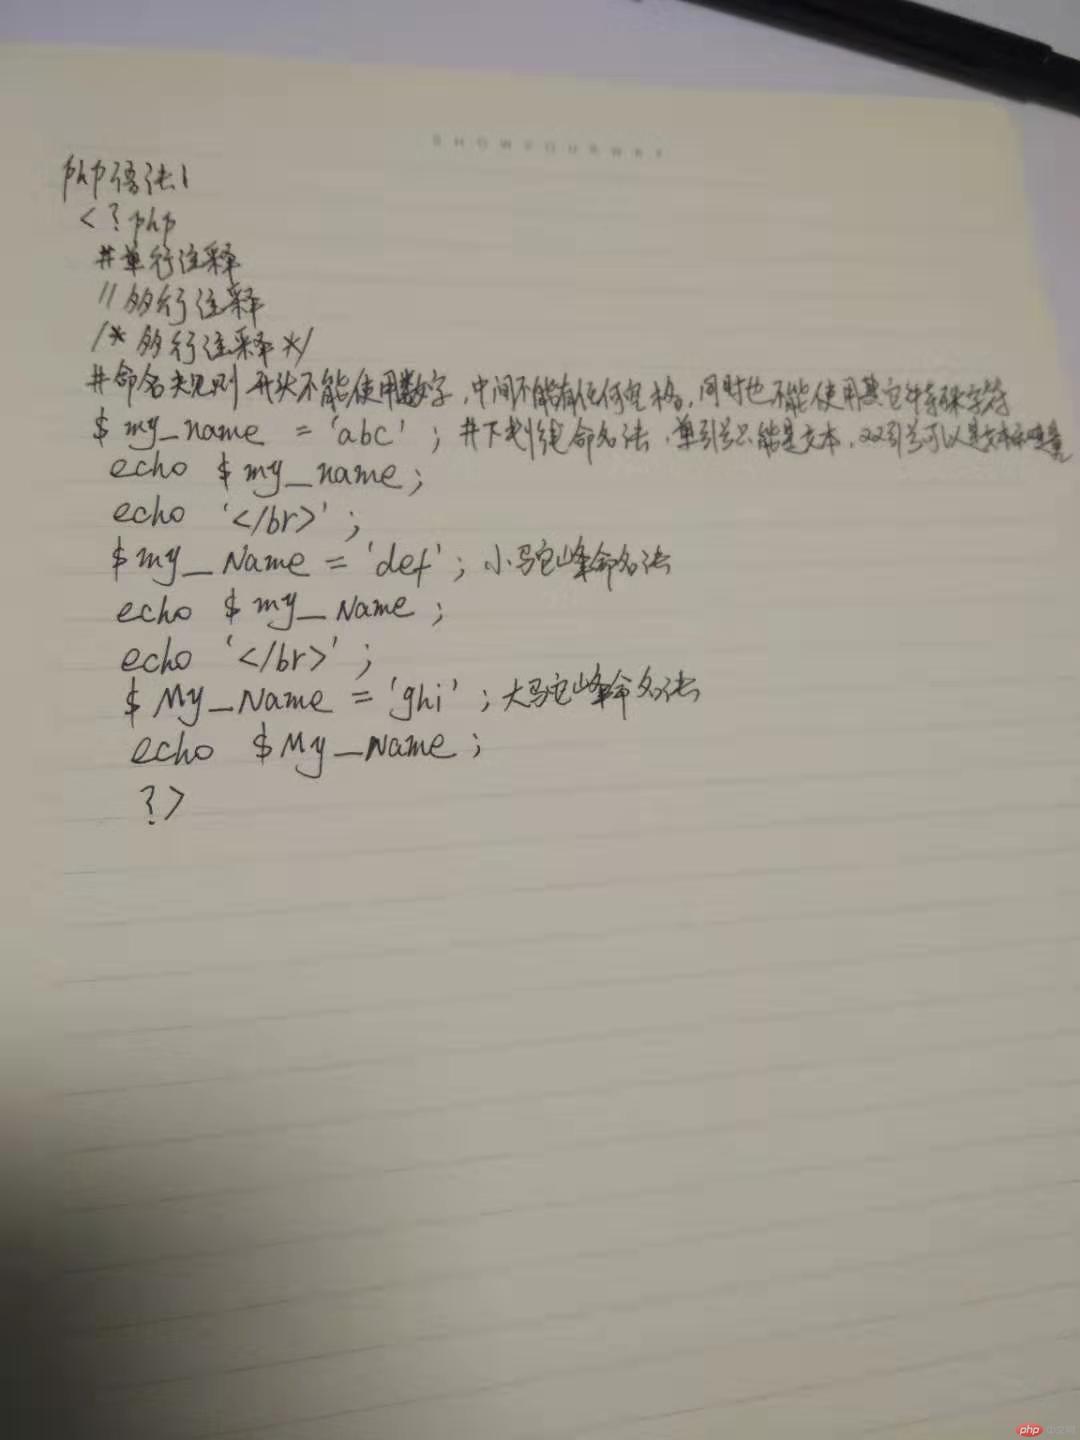 SHOWYOURWAY
php语法1
<?php
#单行注释
//多行注释
/*多行注释*/
#命名规则 开头不能使用数字,中间不能有任何空格,同时也不能使用其它特殊字符
$ my_name = 'abc' ; #下划线命名法,单引号只能是文本,双引号可以是文本和变量
echo $ my_name ;
echo '</br>' ;
$ my_Name = 'def' ; 小驼峰命名法
echo $ my_Name ;
echo '</br>' ;
$ My_Name = 'ghi' ; 大驼峰命名法
echo $ My_Name ;
?>
php 中文网